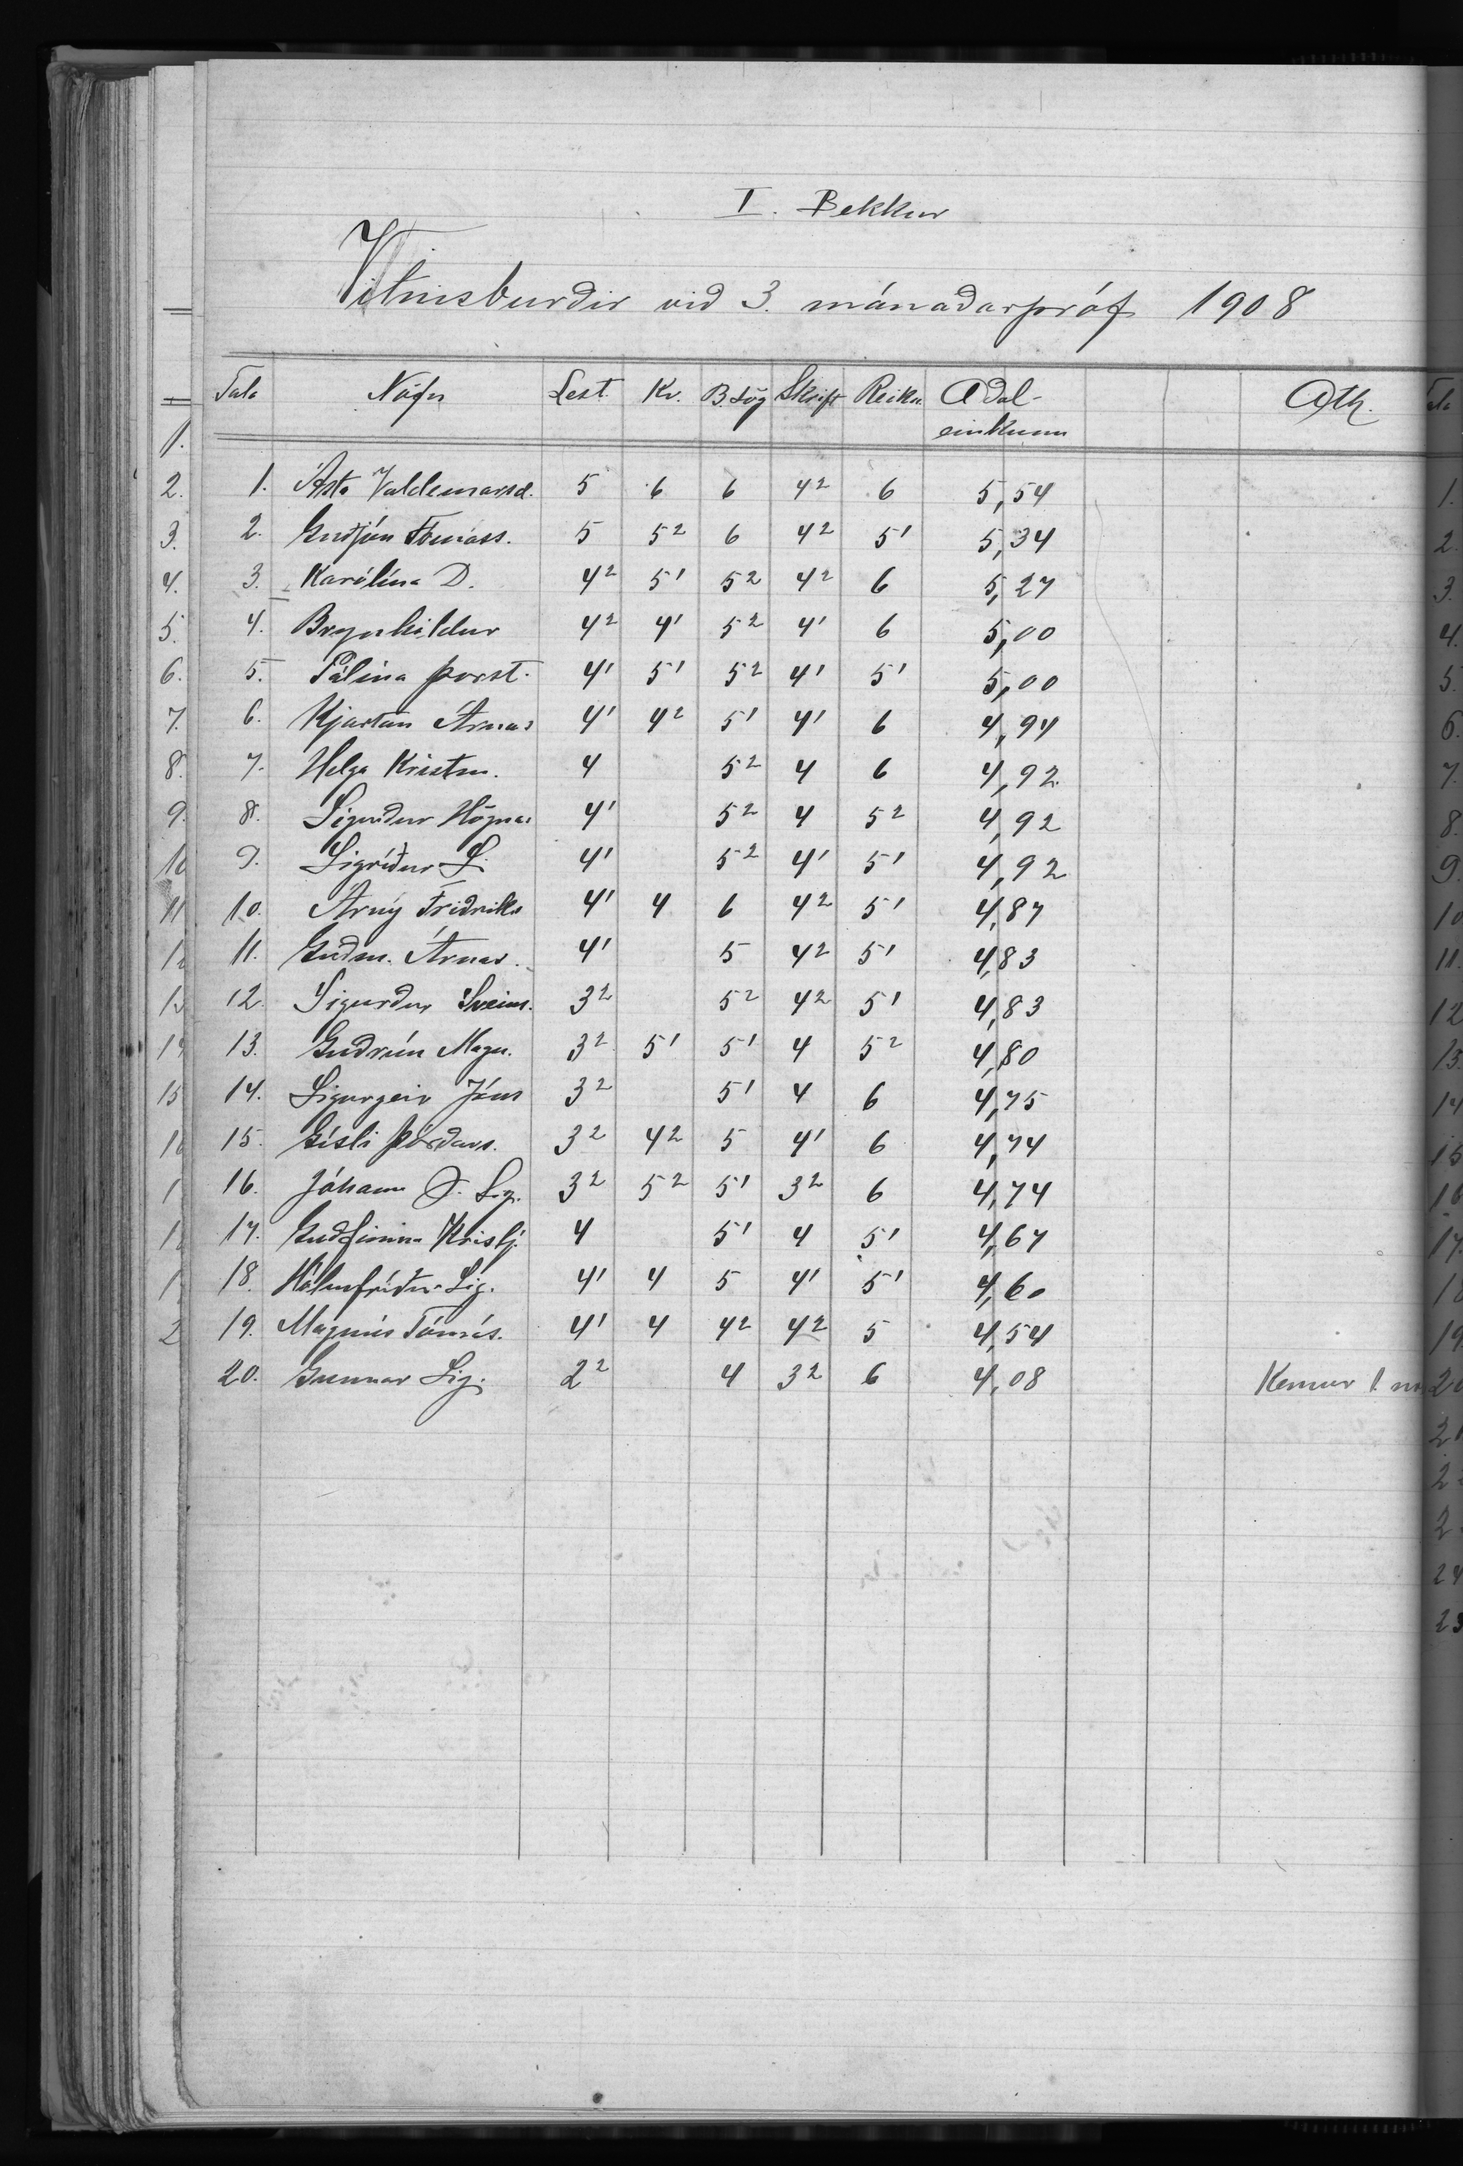 I. Bekkur
Vitnisburðir við 3. mánaðarpróf 1908
Tala Nöfn Lest. Kv. B.sög Skrift Reikn. Aðal-einkunn Ath.
1. Ásta Valdemarsd. 5 6 6 4² 6 5,54
2. Guðjón Tómass. 5 5² 6 4² 5¹ 5,34
3. Karólína D. 4² 5¹ 5² 4² 6 5,27
4. Brynhildur 4² 4¹ 5² 4¹ 6 5,00
5. Pálína Þorst. 4¹ 5¹ 5² 4¹ 5¹ 5,00
6. Kjartan Árnas 4¹ 4² 5¹ 4¹ 6 4,94
7. Helga Kristm. 4 5² 4 6 4,92
8. Sigurður Högnas 4¹ 5² 4 5² 4,92
9. Sigríður S. 4¹ 5² 4¹ 5¹ 4,92
10. Árný Friðriks 4¹ 4 6 4² 5¹ 4,87
11. Guðm. Árnas. 4¹ 5 4² 5¹ 4,83
12. Sigurður Sveins. 3² 5² 4² 5¹ 4,83
13. Guðrún Magn. 3² 5¹ 5¹ 4 5² 4,80
14. Sigurgeir Jóns 3² 5¹ 4 6 4,75
15. Gísli Þórðars. 3² 4² 5 4¹ 6 4,74
16. Jóhann Sig. 3² 5² 5¹ 3² 6 4,74
17. Guðfinna Kristj. 4 5¹ 4 5¹ 4,67
18. Hólmfríður Sig. 4¹ 4 5 4¹ 5¹ 4,60
19. Magnús Tómás. 4¹ 4 4² 4² 5 4,54
20. Gunnar Sig. 2² 4 3² 6 4,08 Kemur 1.